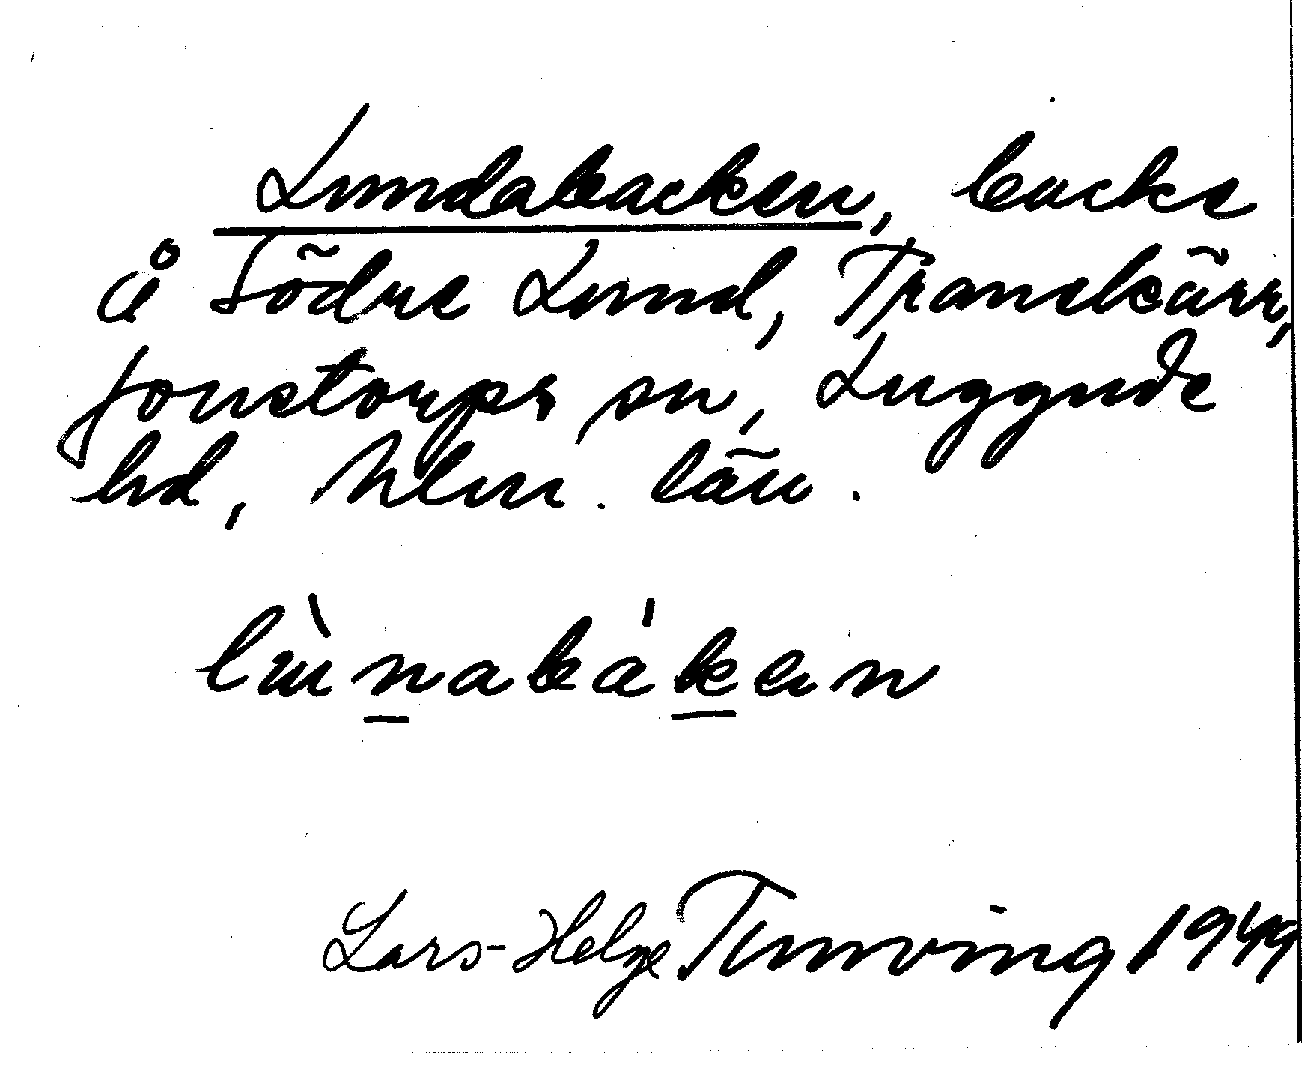 Lundabacken, backe
å Södra Lund, Transkärr,
Jonstorps sn, Luggude
hd, Mlm. län.
lùnabákan
Lars-Helge Tunving 1949